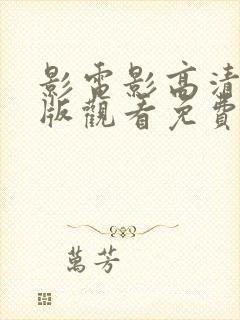 影電影高清
版觀看免費
萬芳